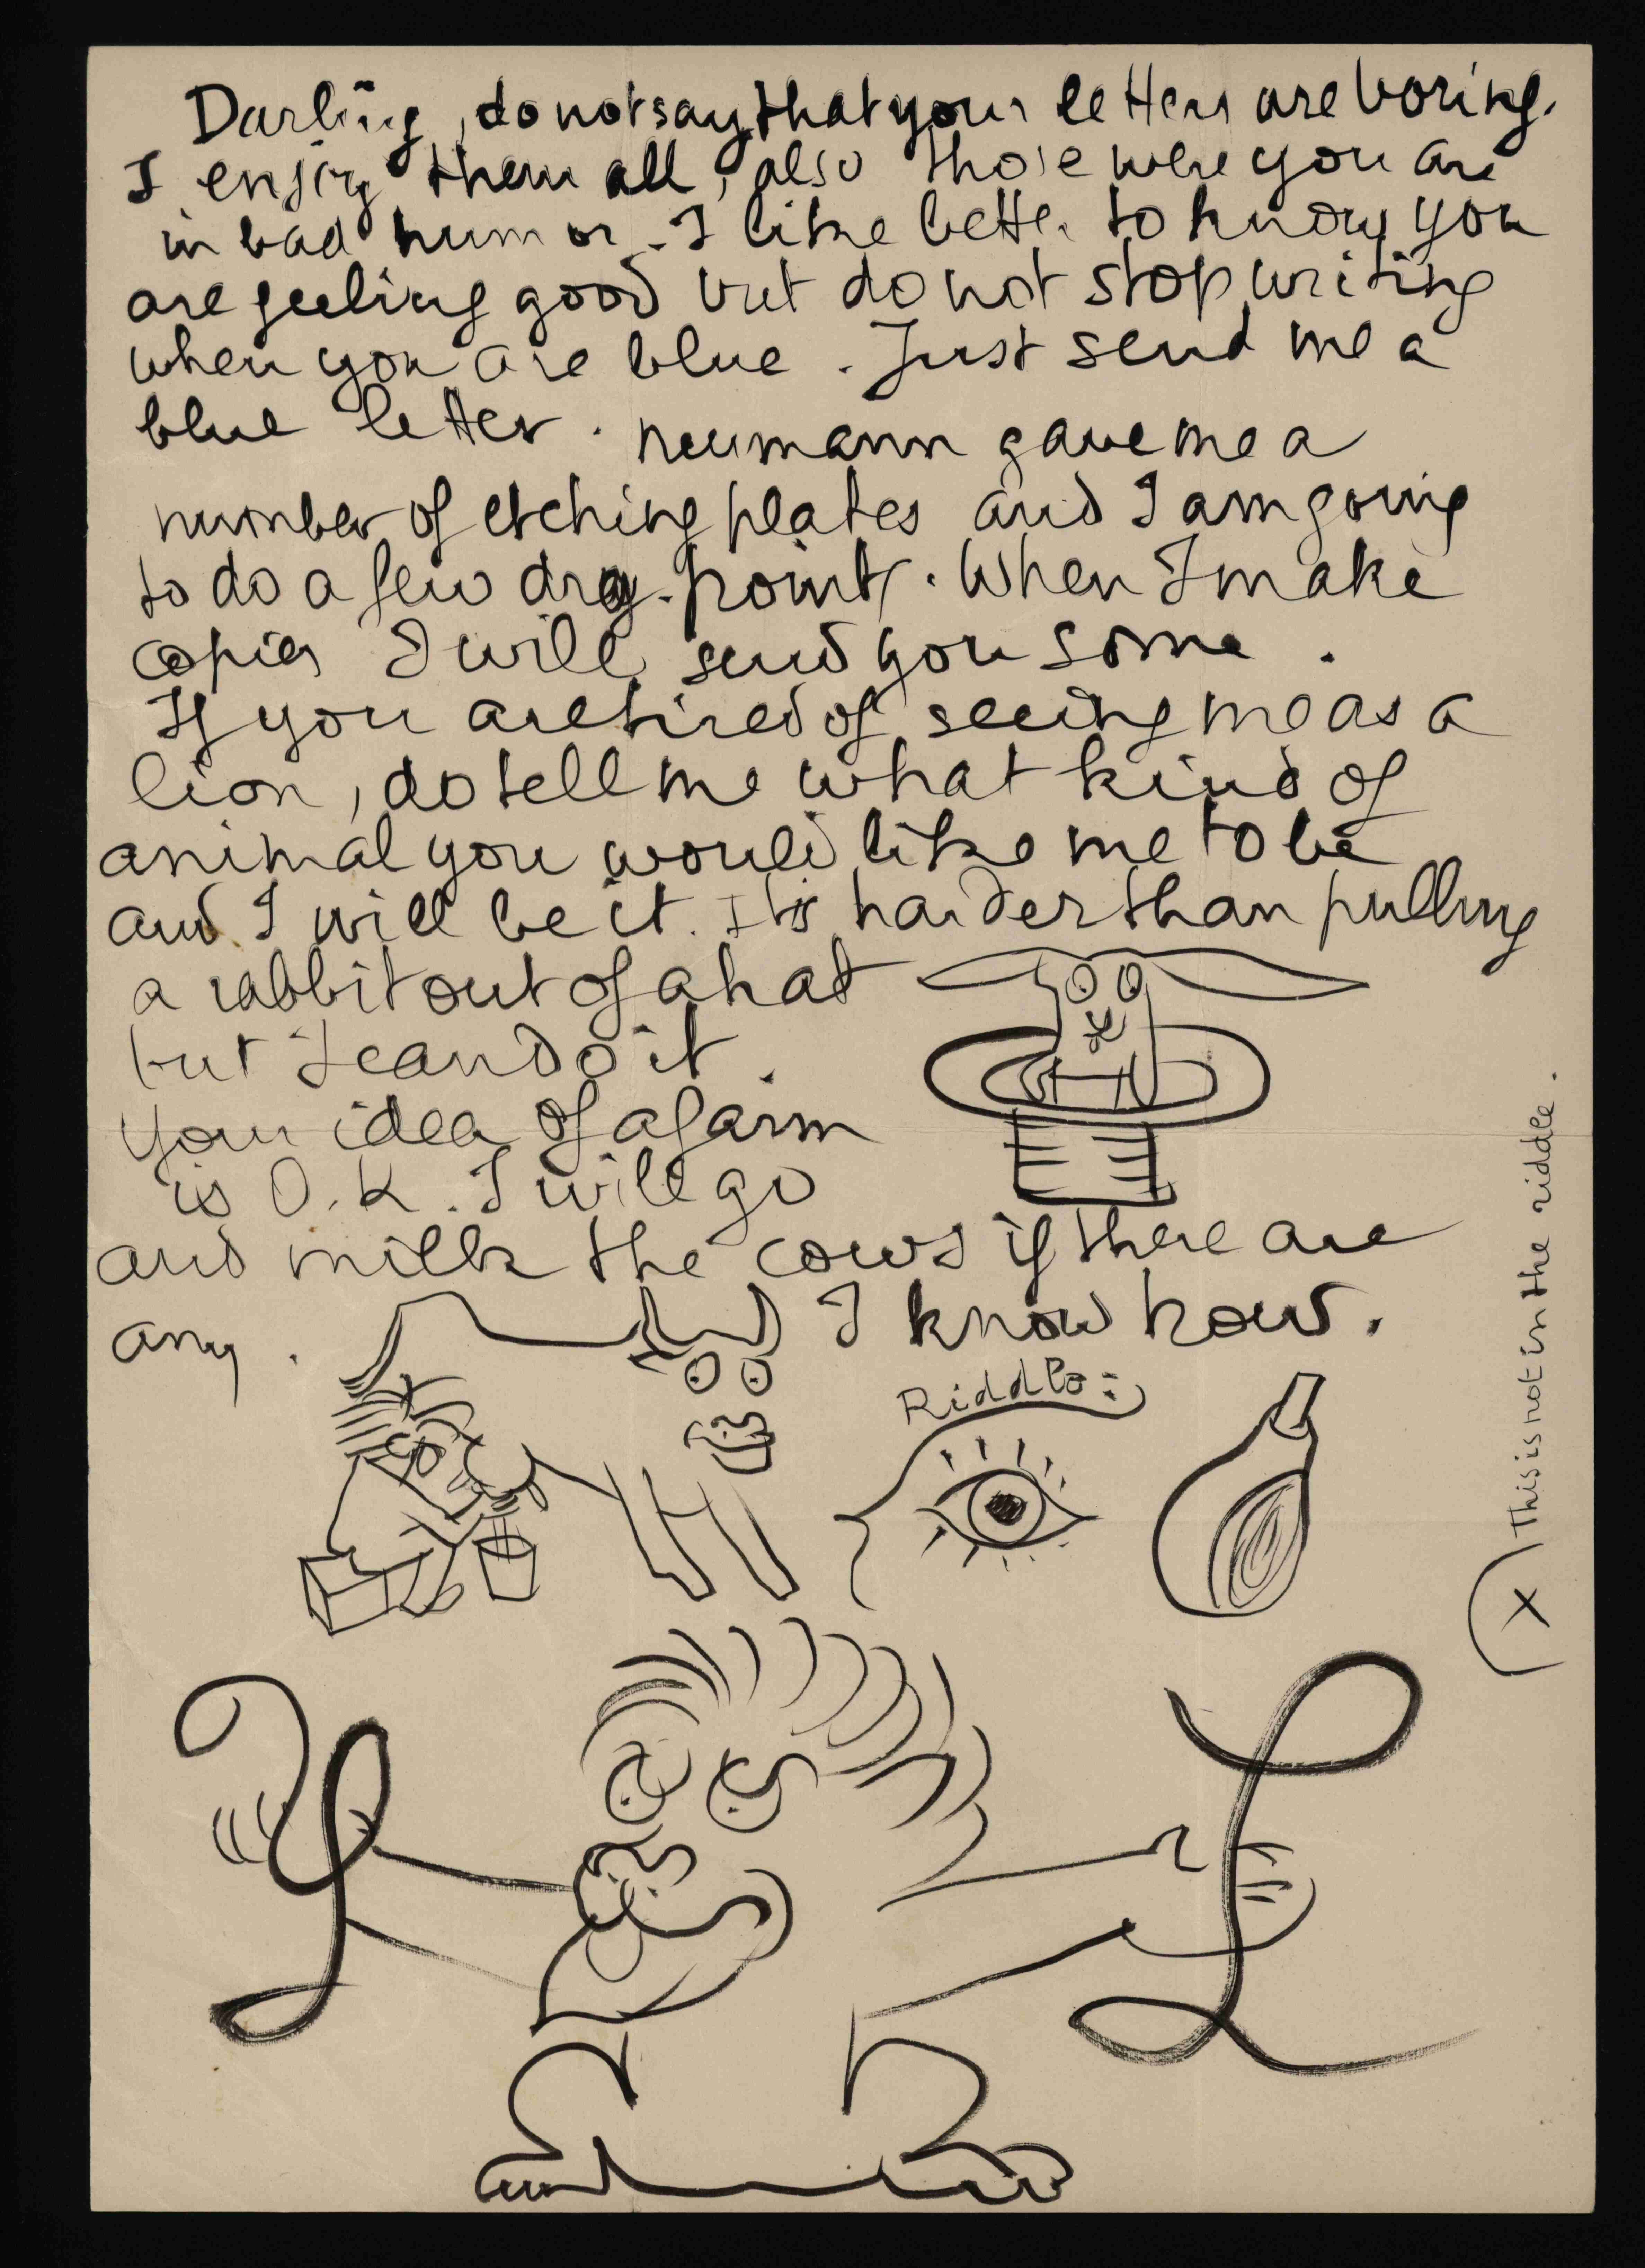 Darling, do not say that your letters are boring.
I enjoy them all, also those where you are
in bad humor. I like better to know you
are feeling good but do not stop writing
when you are blue. Just send me a
blue letter. Neumann gave me a
number of etching plates and I am going
to do a few dry-points. When I make
copies I will send you some.
If you are tired of seeing me as a
lion, do tell me what kind of
animal you would like me to be
and I will be it. It is harder than pulling
a rabbit out of a hat
but I can do it.
Your idea of a farm
is O.K. I will go
and milk the cows if there are
any. I know how.
Riddle:
(X) This is not in the riddle.